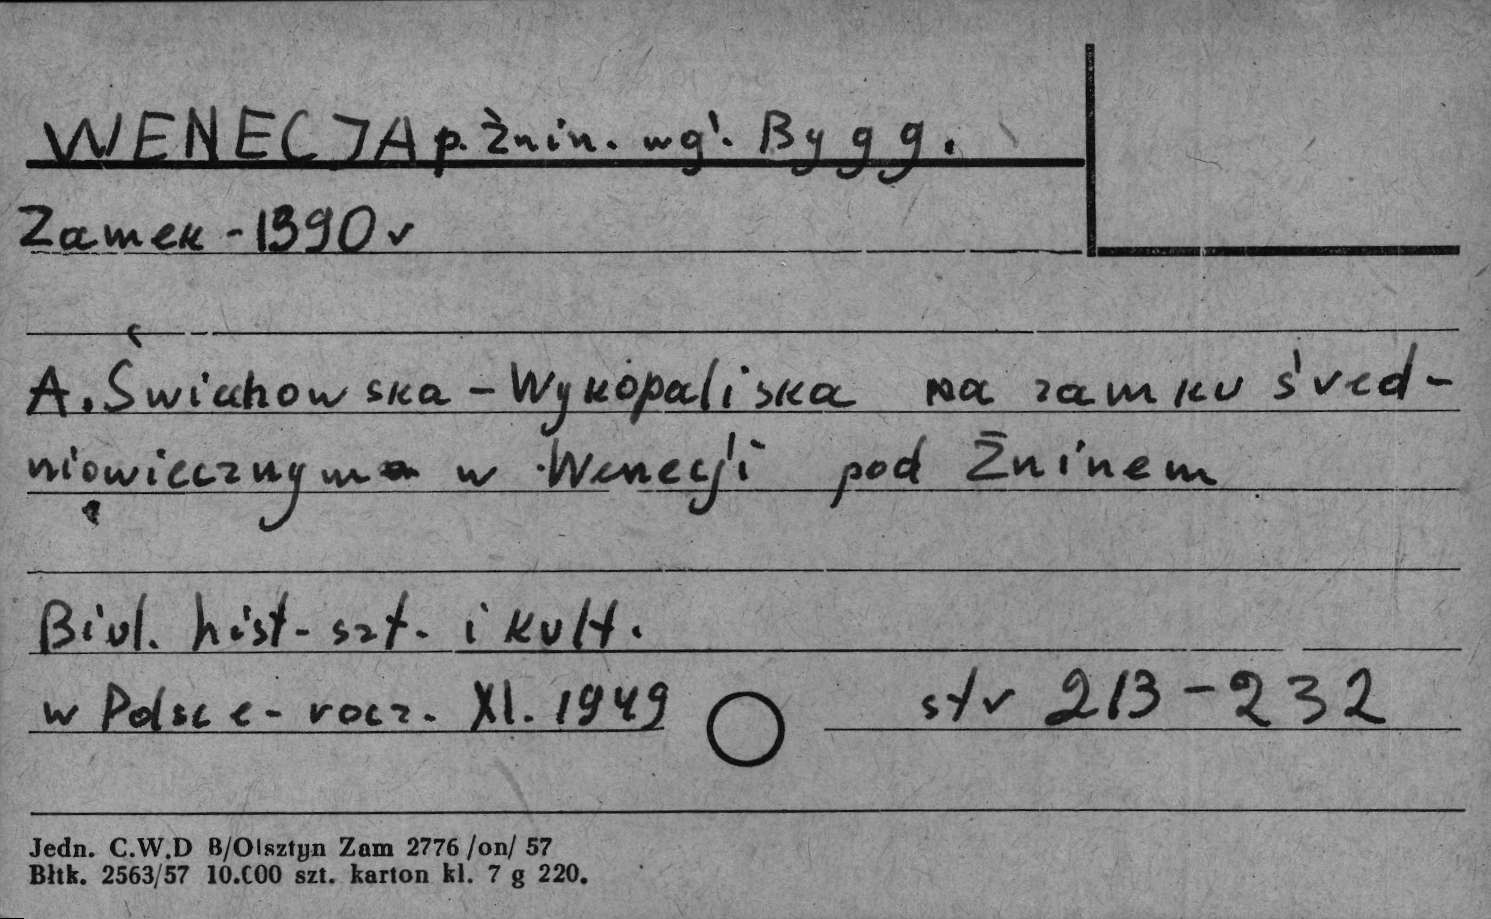 WENECJA p. Żnin. wg'. Bygg.
Zamek - 1390 r
A. Świechowska - Wykopaliska na zamku śred-
niowiecznym w Wenecji pod Żninem
Biul. hist- szt. i kult.
w Polsce - rocz. XI. 1949 str 213-232
Jedn. C.W.D B/Olsztyn Zam 2776 /on/ 57
Błtk. 2563/57 10.000 szt. karton kl. 7 g 220.